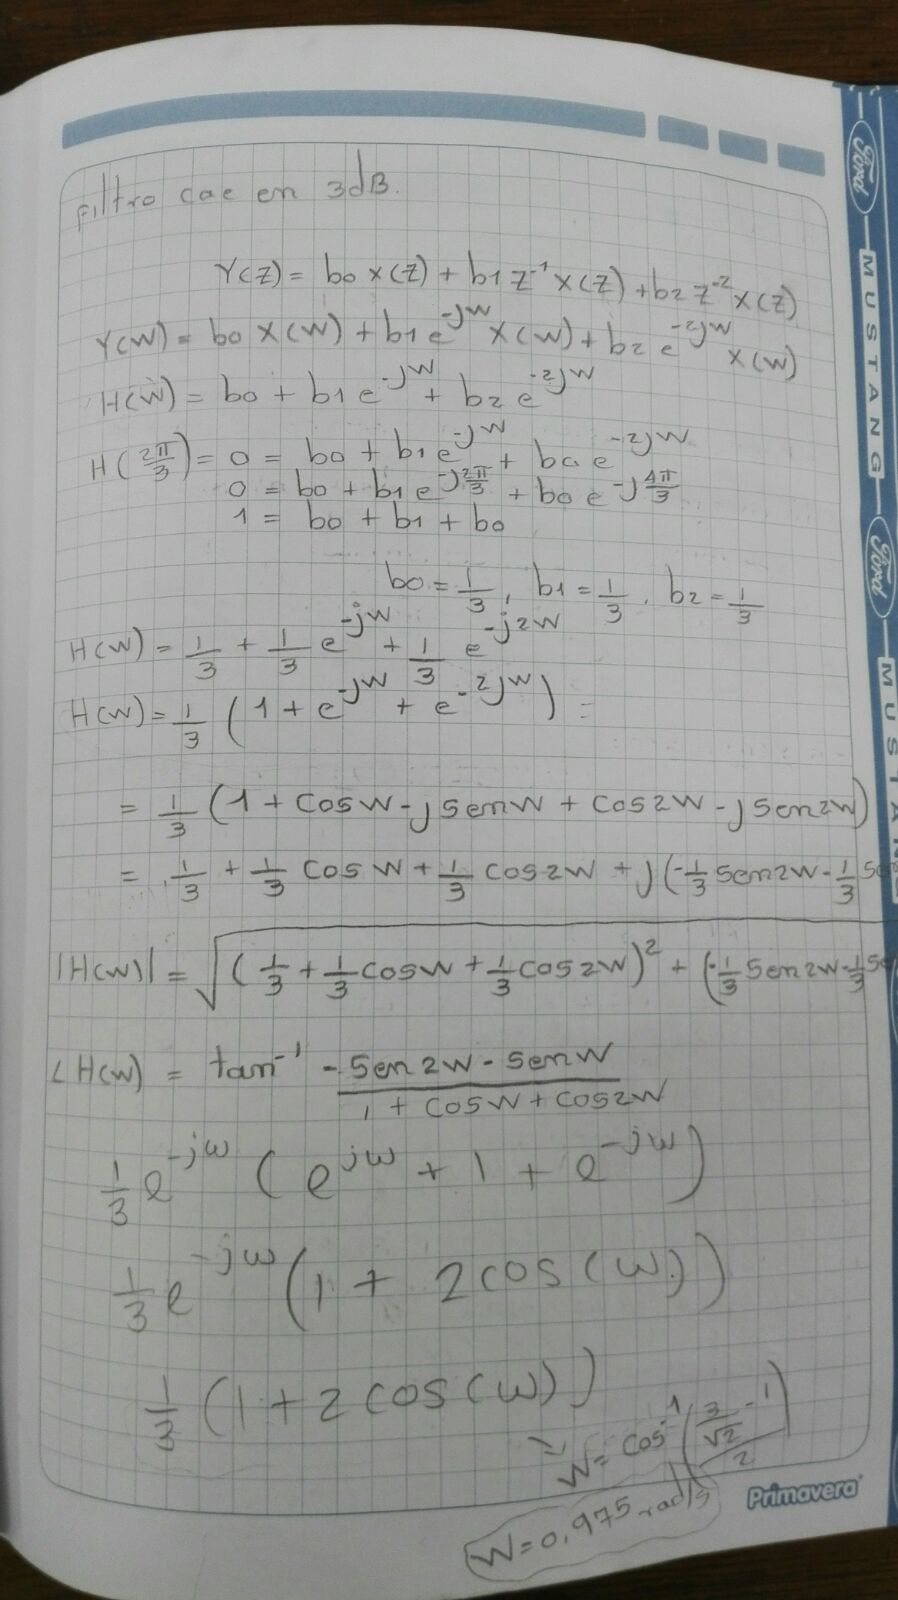 filtro cae en 3dB.
Y(z) = b0 x(z) + b1 z^-1 x(z) + b2 z^-2 x(z)
Y(w) = b0 X(w) + b1 e^-jw X(w) + b2 e^-2jw X(w)
H(w) = b0 + b1 e^-jw + b2 e^-2jw
H(2π/3) = 0 = b0 + b1 e^-jw + b0 e^-2jw
0 = b0 + b1 e^-j2π/3 + b0 e^-j4π/3
1 = b0 + b1 + b0
b0 = 1/3, b1 = 1/3, b2 = 1/3
H(w) = 1/3 + 1/3 e^-jw + 1/3 e^-j2w
H(w) = 1/3 (1 + e^-jw + e^-2jw) =
= 1/3 (1 + cosw - jsenw + cos2w - jsen2w)
= 1/3 + 1/3 cosw + 1/3 cos2w + j(-1/3 sen2w - 1/3
|H(w)| = √(1/3 + 1/3 cosw + 1/3 cos2w)^2 + (-1/3 sen2w - 1/3
∠H(w) = tan^-1 (-sen2w - senw)/(1 + cosw + cos2w)
1/3 e^-jw (e^jw + 1 + e^-jw)
1/3 e^-jw (1 + 2cos(w))
1/3 (1 + 2cos(w))
w = cos^-1 ((3/√2 - 1)/2)
w = 0,975 rad/s
Primavera
Ford
MUSTANG
Ford
MUSTA